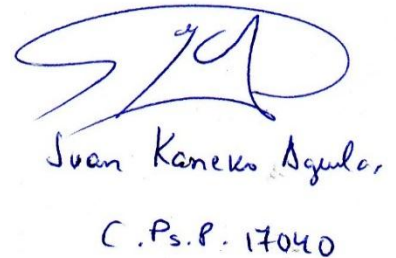 Juan Kaneko Aguila,
C.Ps.P. 17040